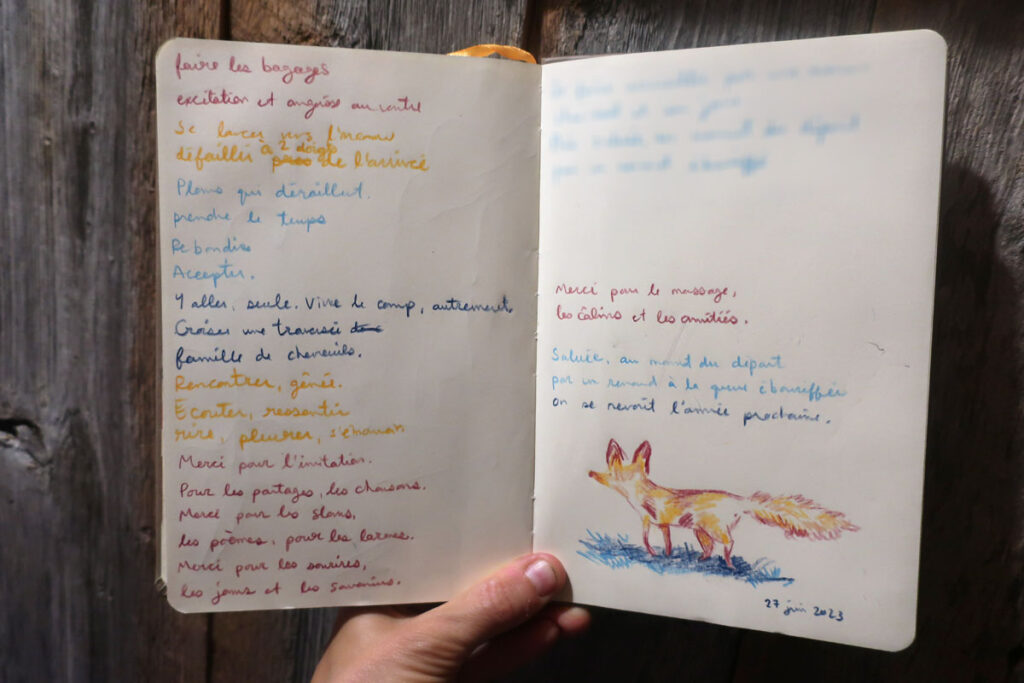 faire les bagages
excitation et angoisse au ventre
Se lancer vers l'inconnu
défaillir à 2 doigts
de l'arrivée
Plans qui déraillent.
prendre le temps
Rebondir
Accepter.
Y aller, seule. Vivre le camp, autrement.
Croiser une traversée
famille de chevreuils.
Rencontrer, gênée.
Écouter, ressentir
rire, pleurer, s'émouvoir
Merci pour l'invitation.
Pour les partages, les chansons.
Merci pour les slams,
les poèmes, pour les larmes.
Merci pour les sourires,
les jams et les
Merci pour le massage,
les câlins et les amitiés.
Saluée, au moment du départ
par un renard à la queue ébouriffée
on se revoit l'année prochaine.
27 juin 2023